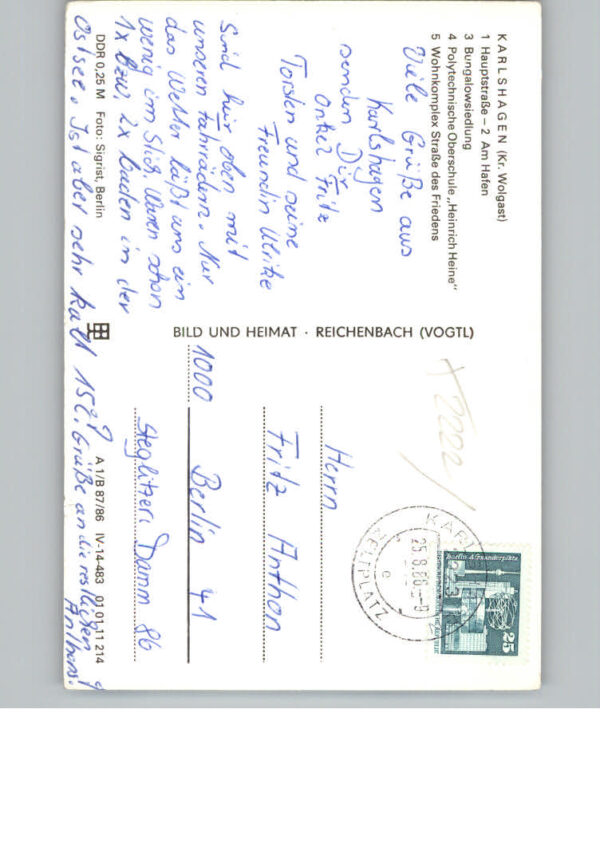 KARLSHAGEN (Kr. Wolgast)
1 Hauptstraße – 2 Am Hafen
3 Bungalowsiedlung
4 Polytechnische Oberschule „Heinrich Heine"
5 Wohnkomplex Straße des Friedens
Viele Grüße aus
Karlshagen
senden Dir
Onkel Fritz
Torsten und seine
Freundin Ulrike
Sind hier oben mit
unseren Fahrrädern. Nur
das Wetter läßt uns ein
wenig im Stich. Waren schon
1x bzw. 2x baden in der
Ostsee. Ist aber sehr kalt 15°C.
Grüße an die restlichen
Anthons.
DDR 0,25 M Foto: Sigrist, Berlin
BILD UND HEIMAT · REICHENBACH (VOGTL)
A 1/B 87/86 IV-14-483 01 01 11 214
Herrn
Fritz Anthon
1000 Berlin 41
Steglitzer Damm 86
ZELTPLATZ
25.8.86
e
Berlin-Alexanderplatz
25